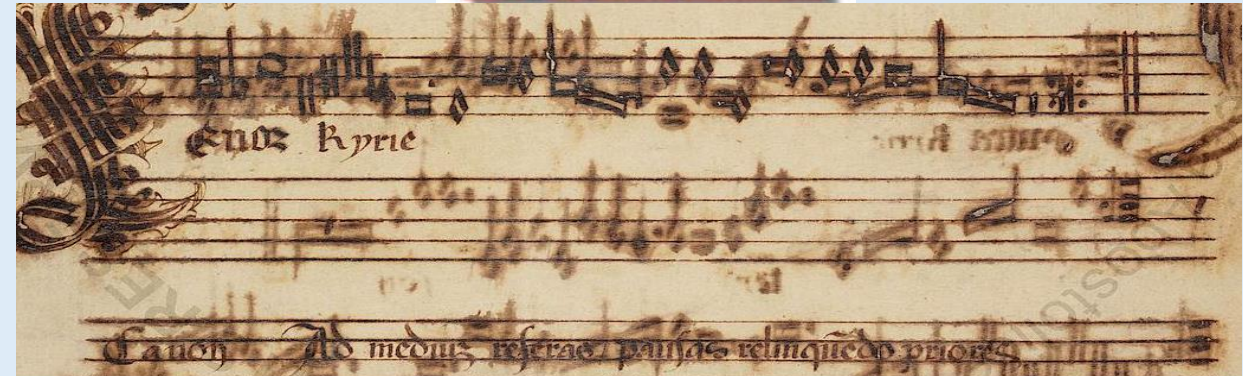 Enor Kyrie
Canon Ad mediuz referas pausas relinquēdo priores